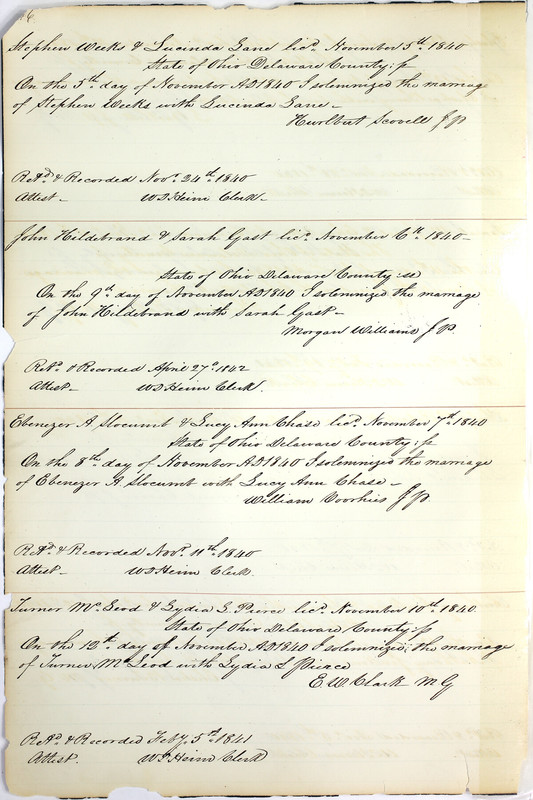 Stephen Weeks & Lucinda Lane licd. November 5th. 1840
State of Ohio Delaware County: ss
On the 5th. day of November AD1840 I solemnized the marriage
of Stephen Weeks with Lucinda Lane—
Hurlbut Scovell JP
Retd. & Recorded Novr. 24th. 1840
Attest— W D Heim Clerk—
John Hildebrand & Sarah Gast licd. November 6th. 1840—
State of Ohio Delaware County: ss
On the 9th. day of November AD1840 I solemnized the marriage
of John Hildebrand with Sarah Gast—
Morgan Williams JP.
Retd. & Recorded April 27d. 1842
Attest— W D Heim Clerk.
Ebenezer A Slocumb & Lucy Ann Chase licd. November 7th. 1840
State of Ohio Delaware County: ss
On the 8th. day of November AD1840 I solemnized the marriage
of Ebenezer A. Slocumb with Lucy Ann Chase—
William Voorhies JP.
Retd. & Recorded Novr. 11th. 1840
Attest— W D Heim Clerk.
Turner Mc.Leod & Lydia L. Pierce licd. November 10th. 1840.
State of Ohio Delaware County: ss
On the 12th. day of November AD1840 I solemnized the marriage
of Turner McLeod with Lydia L Pierce
E. W. Clark MG
Retd. & Recorded Feby. 5th. 1841
Attest. W D Heim Clerk